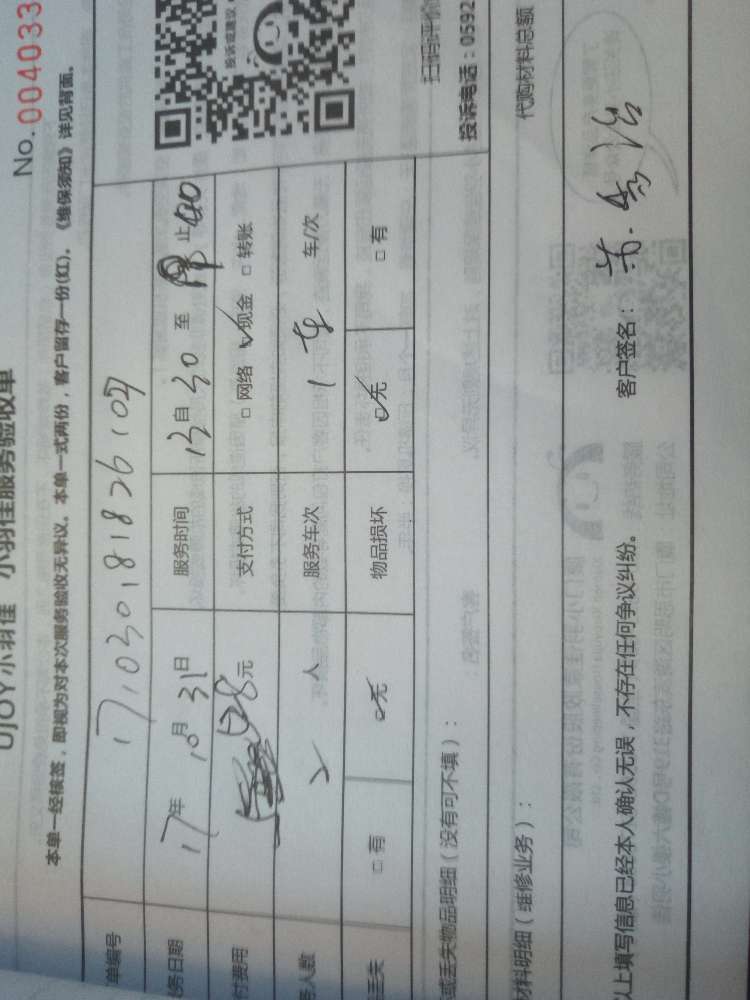 No.004033
UJOY小羽佳 小羽佳服务验收单
本单一经核签，即视为对本次服务验收无异议。本单一式两份，客户留存一份(红)。《维保须知》详见背面。
投诉或建议
单编号 171030181826104
务日期 17年10月31日 服务时间 13 30 至 止
付费用 元 支付方式 □网络 ☑现金 □转账
务人数 2 人 服务车次 1 车/次
丢失 □有 ☑无 物品损坏 ☑无 □有
或丢失物品明细（没有可不填）：
扫码评价
投诉电话：0592
材料明细（维修业务）：
代购材料总额
以上填写信息已经本人确认无误，不存在任何争议纠纷。
客户签名：